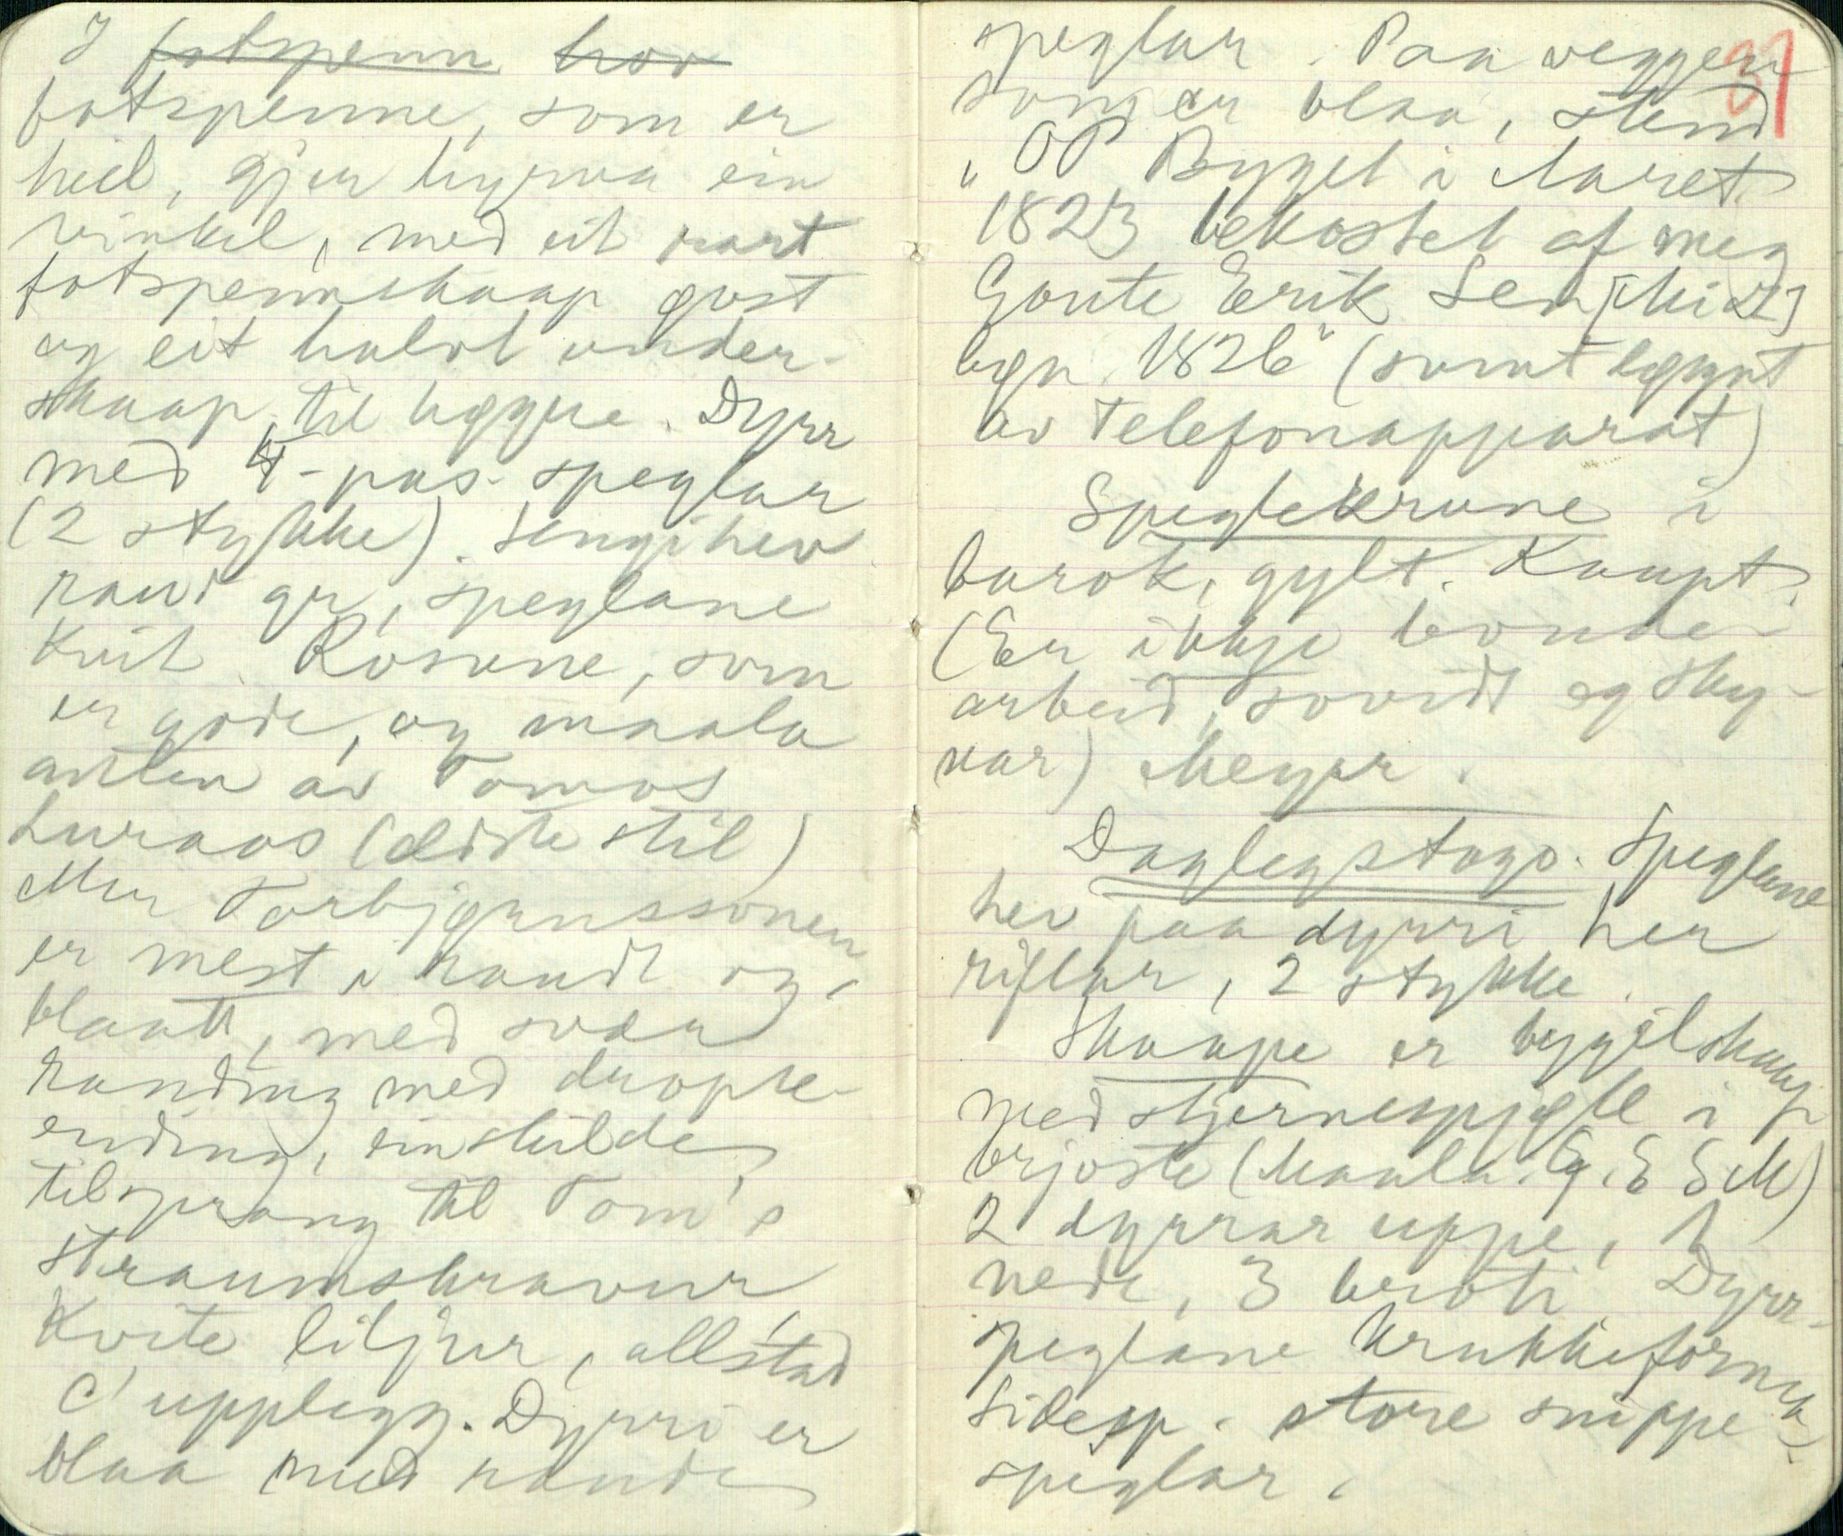 I fotspenn hov
fotspenne, som er
heil, gjer hyrna ein
vinkel, med eit rart
fotspennskaap øvst
og eit halvt under-
skaap, til liggje. Dyrr
med 4-pas-speglar
(2 stykke). Sengi hev
raud gr, speglane
kvit. Rosune, som
er gode, og maala
anten av Tomos
Luraas (eldste stil)
Men Torbjørnssonen
er mest i raudt og
blaatt, med svær
randing med drople-
ending, einskilde
tilsprang til Tom's
straumskravur
Kvite liljur, allstad
C' upplegg. Dyrri er
blaa med raude
speglar. Paa veggen 37
som er blaa, stend
"OP Bygel i Aaret
1823 bekostet af meg
Goute Erik Sen [Mid]
bgn. 1826" (sumt løynt
av telefonapparat)
Speglekrune i
barok, gylt. Kaupt.
(Er ikkje bonde-
arbeid, sovidt eg sky-
nar) Meyer.
Daglegstogo. Speglane
her paa dyrri her
riflar, 2 stykke.
Skaape er bygelskaap
med stjernespjøll i
brjoste (Maala. G. E S M)
2 dyrrar uppe, 1
nede, 3 briot. Dyrr-
speglane krukkeforma
Sidesp. store snippe-
speglar.